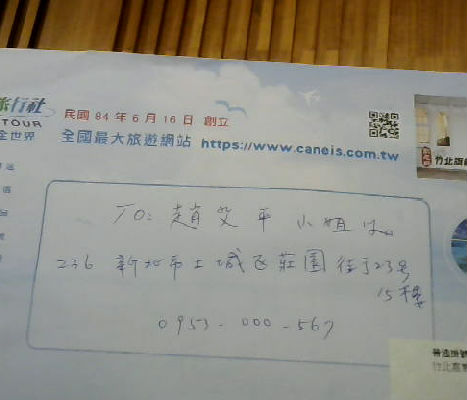 旅行社
TOUR
全世界
民國 84 年 6 月 16 日 創立
全國最大旅遊網站 https://www.caneis.com.tw
竹北
TO: 趙艾平 小姐 收
236 新北市土城區莊園街23号
15樓
0953-000-567
普通掛號
竹北嘉